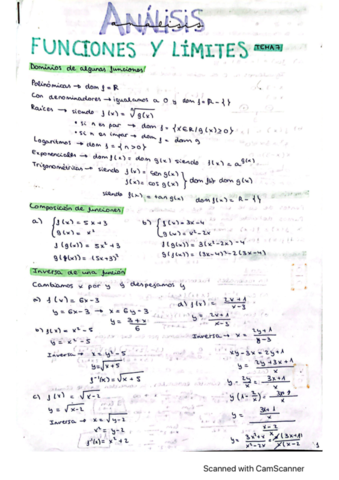 ANÁLISIS
análisis
FUNCIONES Y LÍMITES TEMA 7
Dominios de algunas funciones
Polinómicas → dom f = R
Con denominadores → igualamos a 0 y dom f = R - { }
Raíces → siendo f(x) = ⁿ√g(x)
• si n es par → dom f = {x∈R/g(x)≥0}
• si n es impar → dom f = dom g
Logaritmos → dom f = {n>0}
Exponenciales → dom f(x) = dom g(x) siendo f(x) = a^g(x)
Trigonométricas → siendo f(x) = sen g(x)
f(x) = cos g(x) } dom f(x) = dom g(x)
siendo f(x) = tan g(x) dom f(x) = R - { }
Composición de funciones
a) { f(x) = 5x+3
g(x) = x²
f(g(x)) = 5x²+3
g(f(x)) = (5x+3)²
b) { f(x) = 3x-4
f(g(x)) = 3(x²-2x)-4
g(f(x)) = (3x-4)²-2(3x-4)
Inversa de una función
Cambiamos x por y y despejamos y
a) f(x) = 6x-3
y = 6x-3 → x = 6y-3
y = 3+x/6
b) f(x) = x²-5
y = x²-5
Inversa → x = y²-5
y = √x+5
f⁻¹(x) = √x+5
c) f(x) = √x-2
y = √x-2
Inversa → x = √y-2
x² = y-2
f⁻¹(x) = x²+2
d) f(x) = 2x+1/x-3
y = 2x+1/x-3
Inversa → x = 2y+1/y-3
xy-3x = 2y+1
y = 2y+3x+1/x
y - 2y/x = 3x+1/x
y(1-2/x) = 3x+1/x
Scanned with CamScanner